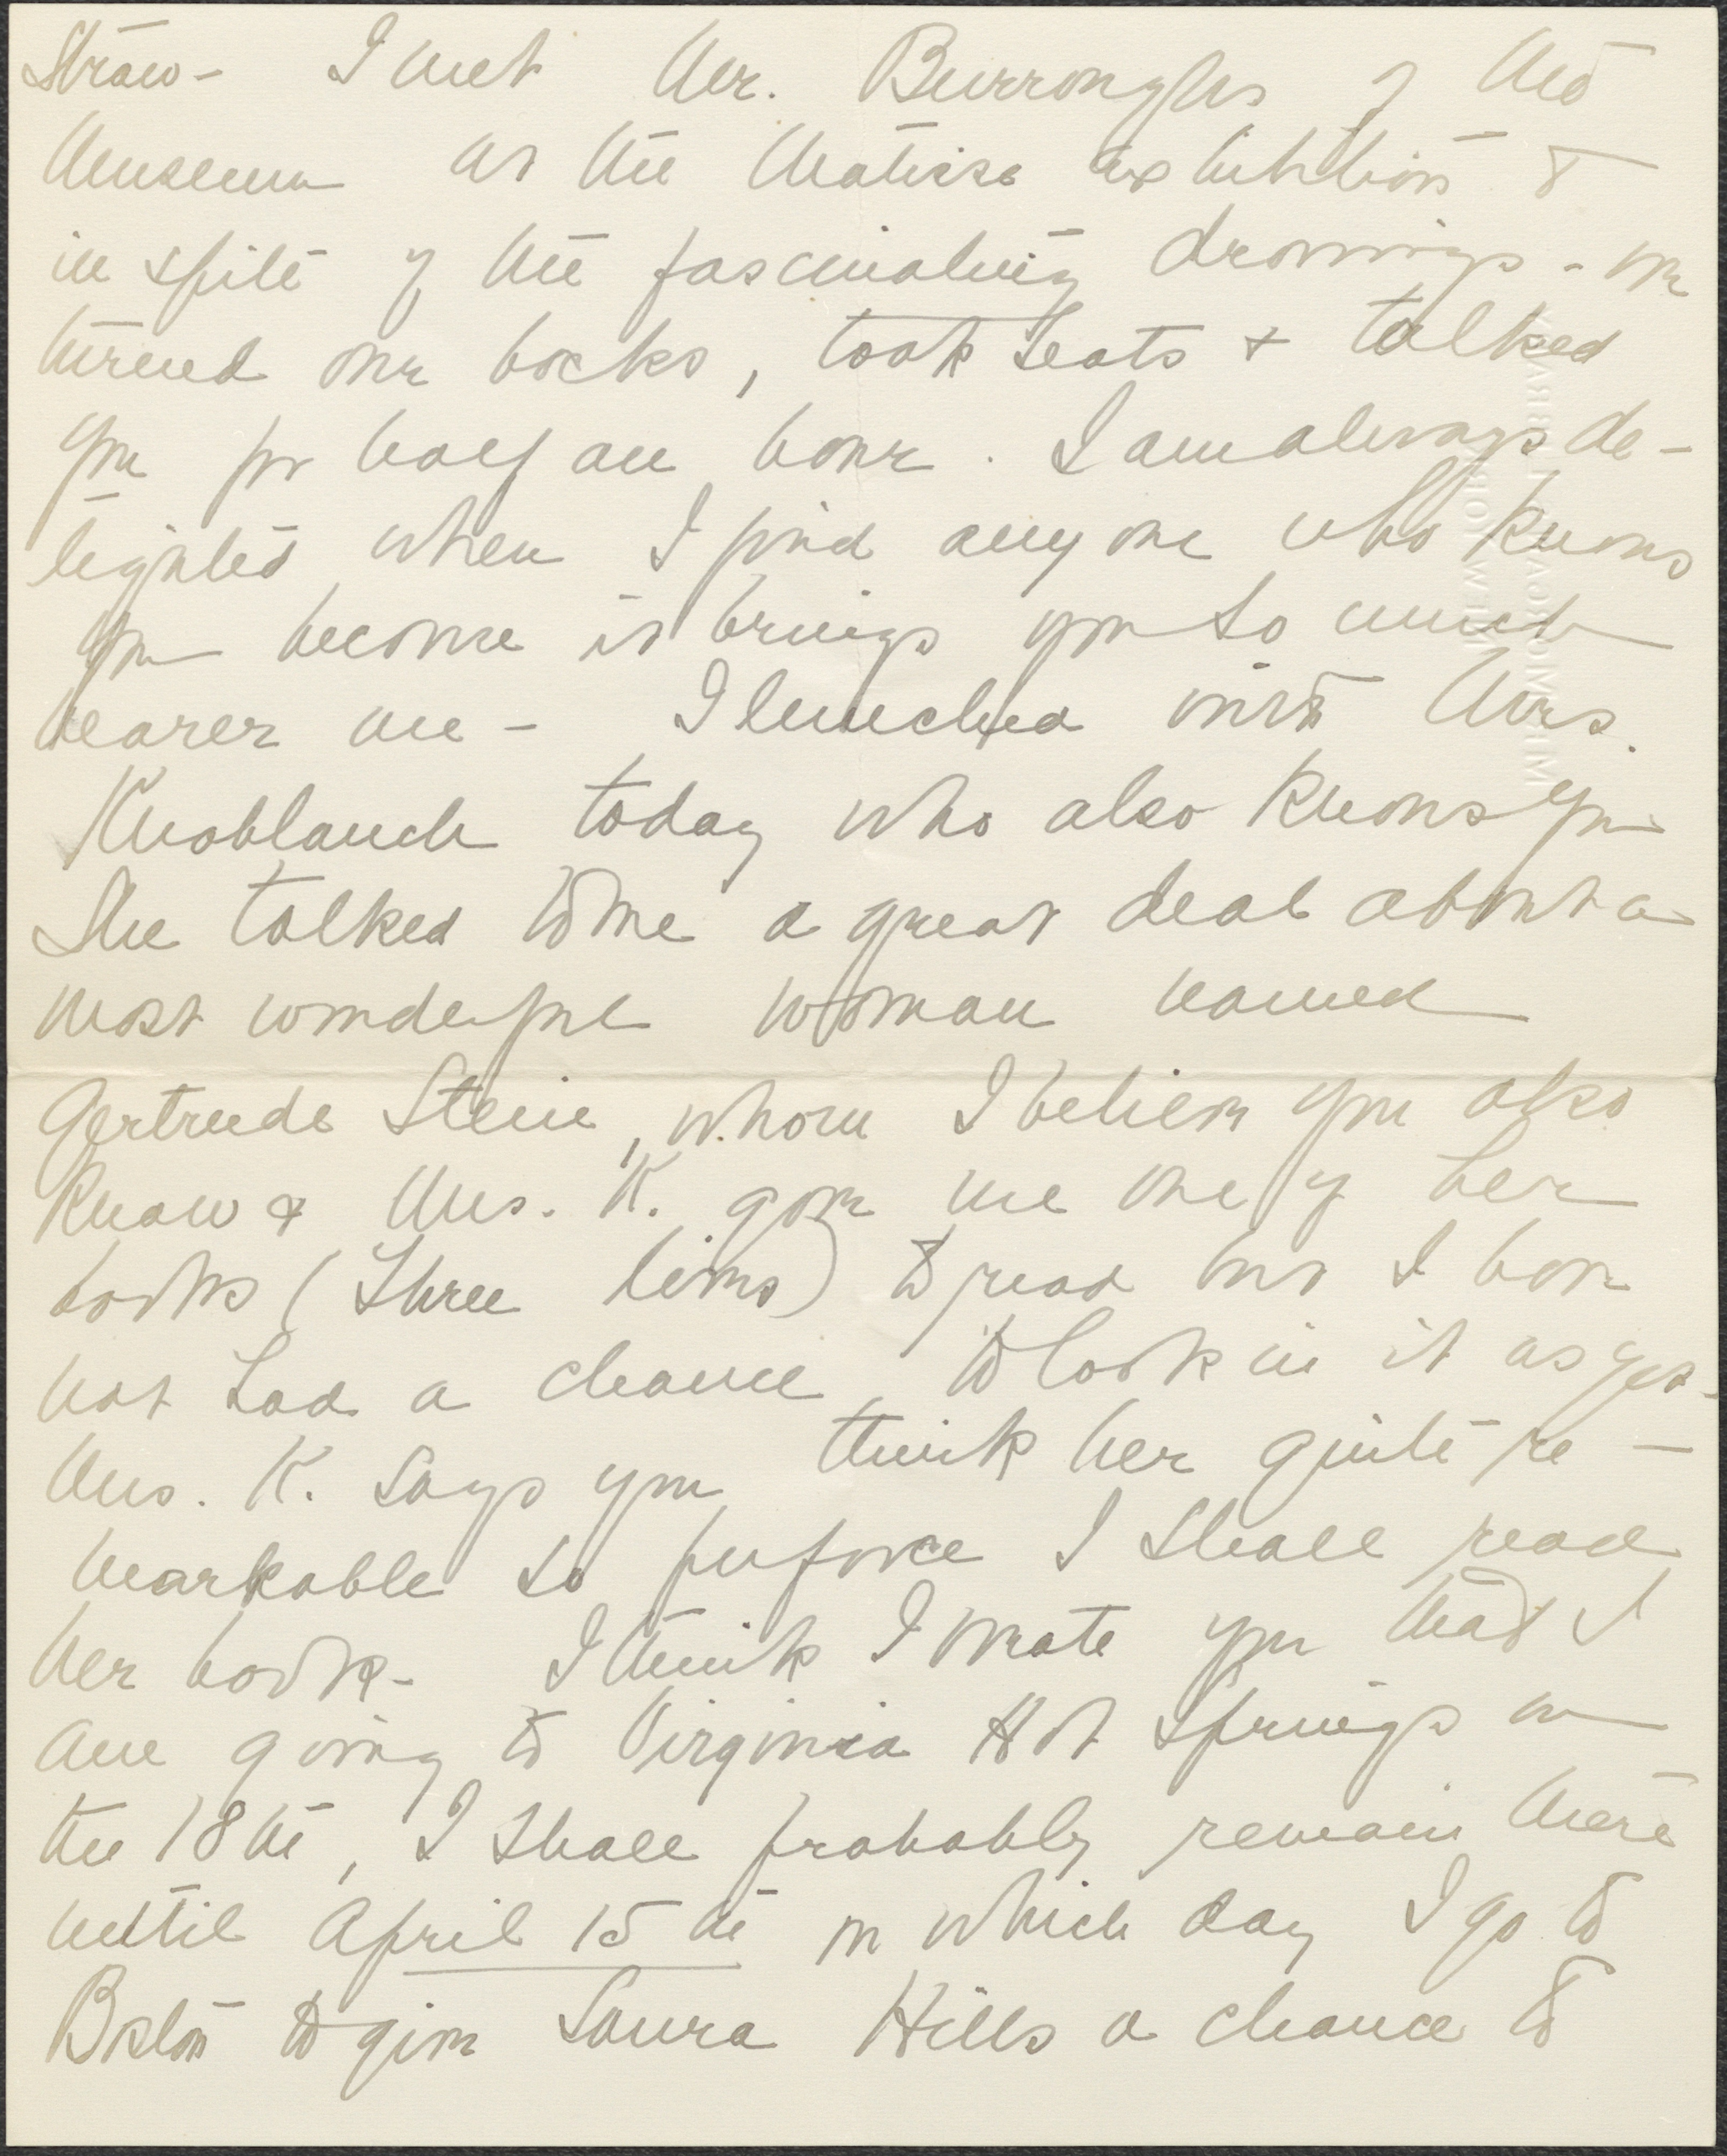 Straw – I met Mr. Burroughs of the
Museum at the Matisse exhibition &
in spite of the fascinating drawings – we
turned our backs, took seats & talked
you for half an hour. I am always de-
lighted when I find any one who knows
you because it brings you so much
nearer me – I lunched with Mrs.
Knoblauch today who also knows you
She talked to me a great deal about a
most wonderful woman named
Gertrude Stein, whom I believe you also
know & Mrs. K. gave me one of her
books (Three lives) to read but I have
not had a chance to look in it as yet.
Mrs. K. says you think her quite re-
markable so perforce I shall read
her book – I think I wrote you that I
am going to Virginia Hot Springs on
the 18th, I shall probably remain there
until April 15th on which day I go to
Boston to give Laura Hills a chance to